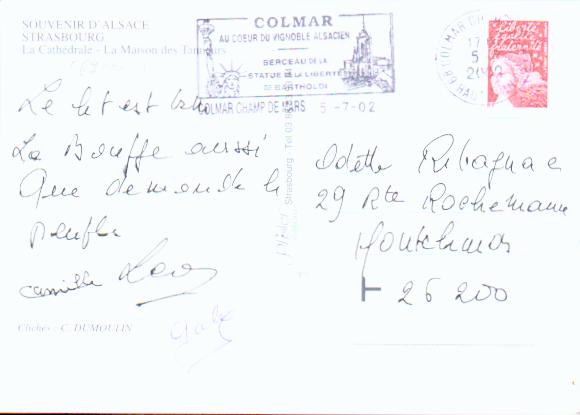 SOUVENIR D'ALSACE
STRASBOURG
La Cathédrale - La Maison des Tanneurs
COLMAR
AU COEUR DU VIGNOBLE ALSACIEN
BERCEAU DE LA
STATUE DE LA LIBERTÉ
DE BARTHOLDI
COLMAR CHAMP DE MARS 5-7-02
Liberté
égalité
fraternité
Le lit est
La Bouffe aussi
Que demande le
peuple
Camille
Clichés : C. DUMOULIN
Strasbourg Tel 03
Odette
29 Rte Rochemaure
Montélimar
26 200